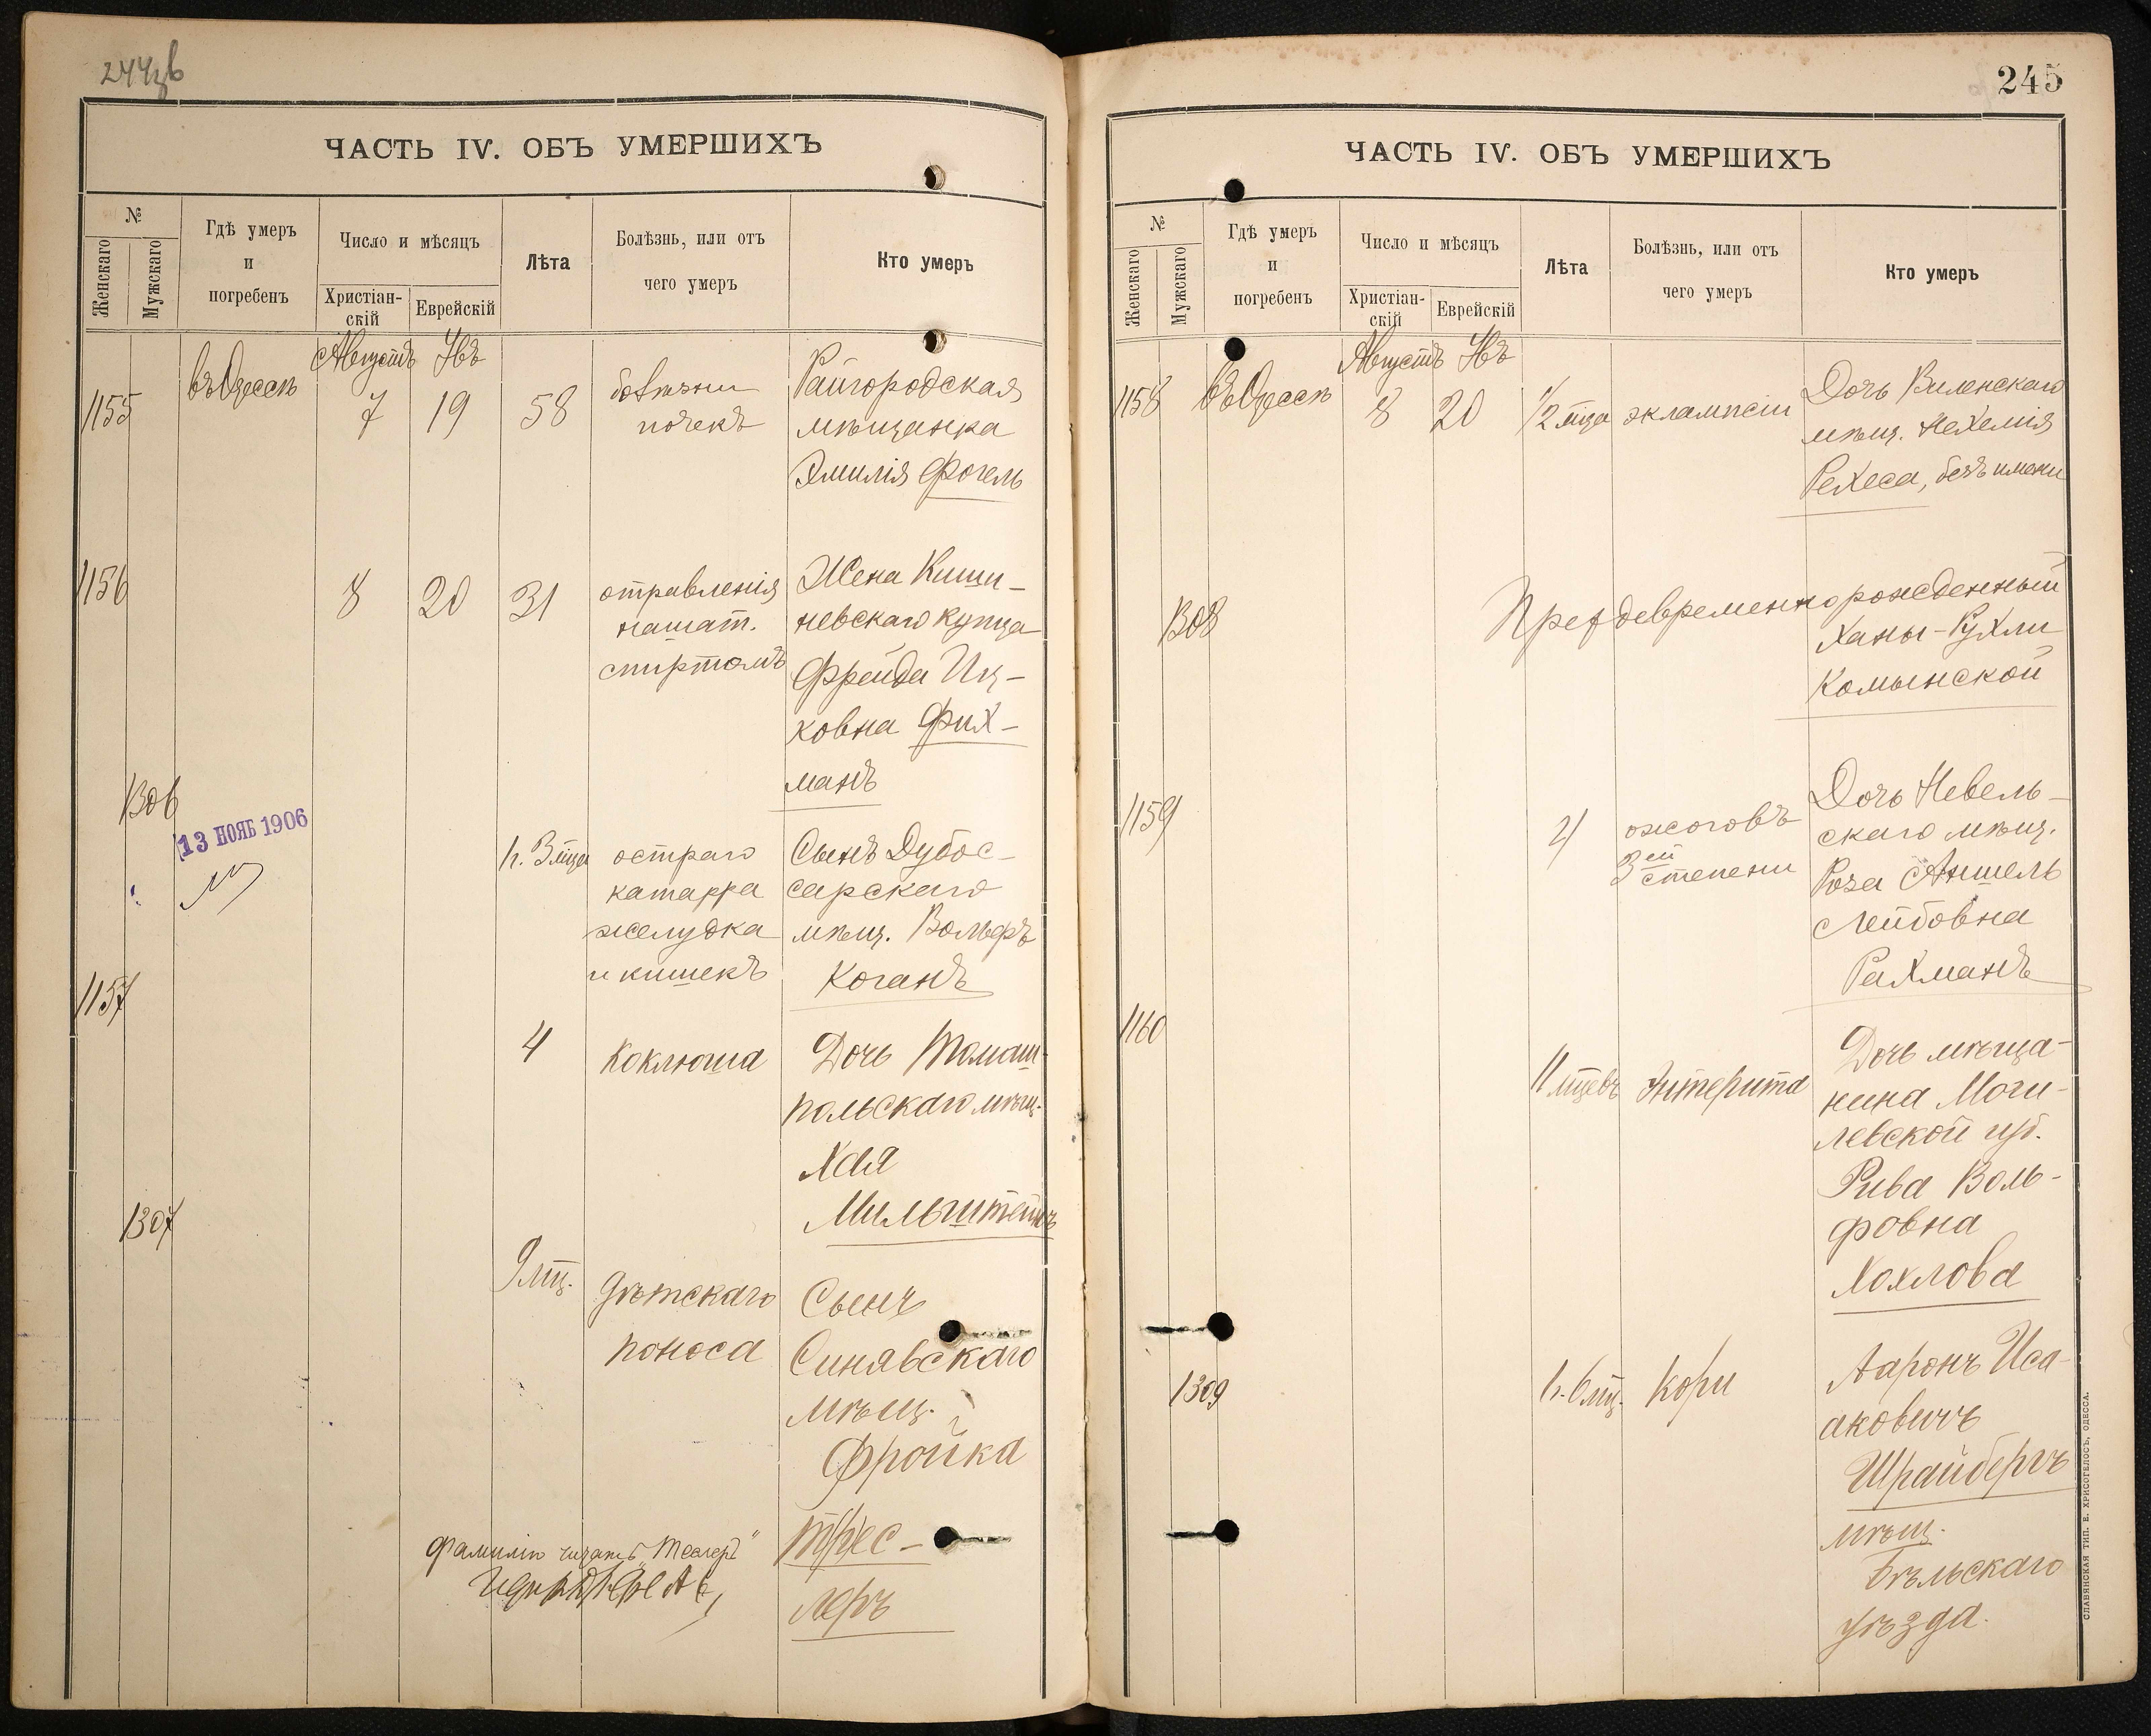 244об
ЧАСТЬ IV. ОБЪ УМЕРШИХЪ
№
Женскаго
Мужскаго
Гдѣ умеръ
и
погребенъ
Число и мѣсяцъ
Христіан-
скій
Еврейскій
Лѣта
Болѣзнь, или отъ
чего умеръ
Кто умеръ
Августъ
1155
въ Одессѣ
7
19
58
болѣзни
почекъ
Райгородская
мѣщанка
Эмилія Фогель
1156
8
20
31
отравленія
нашат.
спиртомъ
Жена Киши-
невскаго купца
Фрейда Иц-
ковна Фих-
манъ
1306
13 НОЯБ 1906
остраго
катарра
желудка
и кишекъ
Сынъ Дубос-
сарскаго
мѣщ. Вольфъ
Коганъ
1157
4
Коклюша
Дочь Томаш-
польскаго мѣщ.
Хая
Мильштейнъ
1307
9 мц.
Дѣтскаго
поноса
Сынъ
Синявскаго
мѣщ.
Фройка
Трес-
леръ
фамилію читать "Теслеръ"
245
ЧАСТЬ IV. ОБЪ УМЕРШИХЪ
№
Женскаго
Мужскаго
Гдѣ умеръ
и
погребенъ
Число и мѣсяцъ
Христіан-
скій
Еврейскій
Лѣта
Болѣзнь, или отъ
чего умеръ
Кто умеръ
Августъ
1158
въ Одессѣ
8
20
1/2 мца
эклампсіи
Дочь Виленскаго
мѣщ. Нехемія
Рехеса, безъ имени
1308
Преждевременнорожденный
Ханы-Рухли
Комынской
1159
4
ожоговъ
3ей степени
Дочь Невель-
скаго мѣщ.
Роза Аншель
Лейбовна
Рахманъ
1160
11 мцевъ
Энтерита
Дочь мѣща-
нина Моги-
левской губ.
Рива Воль-
фовна
Хохлова
1309
1 г. 6 мц.
Кори
Ааронъ Иса-
аковичъ
Шрайбергъ
мѣщ.
Бѣльскаго
уѣзда.
СЛАВЯНСКАЯ ТИП. Е. ХРИСОГЕЛОСЪ, ОДЕССА.